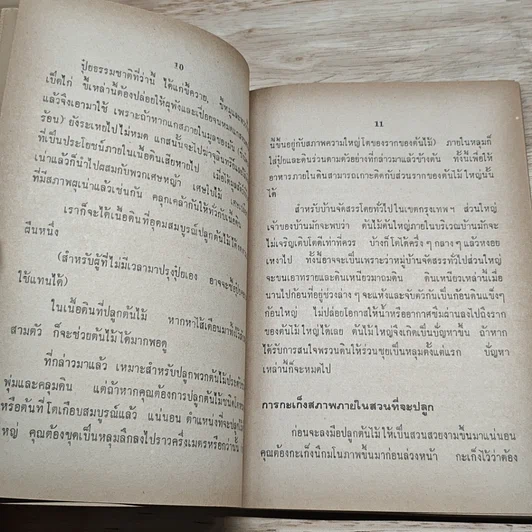 10
ปุ๋ยธรรมชาติที่ว่านี้ ได้แก่ขี้ควาย,
เป็ดไก่ ขี้เหล่านี้ต้องปล่อยให้ผุพังและเปื่อยจน
แล้วจึงเอามาใช้ เพราะถ้าหากแกสภายใน
ร้อน) ยังระเหยไปไม่หมด แกสนั้นจะไป
ที่เป็นประโยชน์ภายในเนื้อดินเสียหายไป
เน่าแล้วก็นำไปผสมกับพวกเศษหญ้า เศษใบไม้
ที่มีสภาพผุเน่าแล้วเช่นกัน คลุกเคล้ากันให้ทั่ว
เราก็จะได้เนื้อดินที่อุดมสมบูรณ์ปลูกต้นไม้
ผืนหนึ่ง
(สำหรับผู้ที่ไม่มีเวลามาปรุงปุ๋ยเอง อาจจะซื้อ
ใช้แทนได้)
ในเนื้อดินที่ปลูกต้นไม้ หากหาไส้เดือนมา
สามตัว ก็จะช่วยต้นไม้ได้มากพอดู
ที่กล่าวมาแล้ว เหมาะสำหรับปลูกพวกต้นไม้
พุ่มและคลุมดิน แต่ถ้าหากคุณต้องการปลูกต้นไม้
หรือต้นที่โตเกือบสมบูรณ์แล้ว แน่นอน ตำแหน่งที่จะปลูก
ใหญ่ คุณต้องขุดเป็นหลุมลึกลงไปราวครึ่งเมตรหรือกว่านั้น
11
นี้ขึ้นอยู่กับสภาพความใหญ่โตของรากของต้นไม้) ภายในหลุมก็
ใส่ปุ๋ยและดินร่วนตามตัวอย่างที่กล่าวมาแล้วข้างต้น ทั้งนี้เพื่อให้
อาหารภายในดินสามารถเกาะติดกับส่วนรากของต้นไม้ใหญ่นั้น
ได้
สำหรับบ้านจัดสรรโดยทั่วไปในเขตกรุงเทพฯ ส่วนใหญ่
เจ้าของบ้านมักจะพบว่า ต้นไม้ต้นใหญ่ภายในบริเวณบ้านมักจะ
ไม่เจริญเติบโตดีเท่าที่ควร บ้างก็โตได้ครึ่ง ๆ กลาง ๆ แล้วหงอย
เหงาไป ทั้งนี้อาจจะเป็นเพราะว่าหมู่บ้านจัดสรรทั่วไปส่วนใหญ่
จะขนเอาทรายและดินเหนียวมาถมดิน ดินเหนียวเหล่านี้เมื่อ
นานไปก้อนที่อยู่ช่วงล่าง ๆ จะแห้งและจับตัวกันเป็นก้อนดินแข็งๆ
ก้อนใหญ่ ไม่ปล่อยโอกาสให้น้ำหรืออากาศซึมผ่านลงไปถึงราก
ของต้นไม้ใหญ่ได้เลย ต้นไม้ใหญ่จึงเกิดเป็นปัญหาขึ้น ถ้าหาก
ได้รับการสนใจพรวนดินให้ร่วนซุยเป็นหลุมตั้งแต่แรก ปัญหา
เหล่านี้ก็จะหมดไป
การกะเก็งสภาพภายในสวนที่จะปลูก
ก่อนจะลงมือปลูกต้นไม้ให้เป็นสวนสวยงามขึ้นมาแน่นอน
คุณต้องกะเก็งนึกมโนภาพขึ้นมาก่อนล่วงหน้า กะเก็งไว้ว่าต้อง